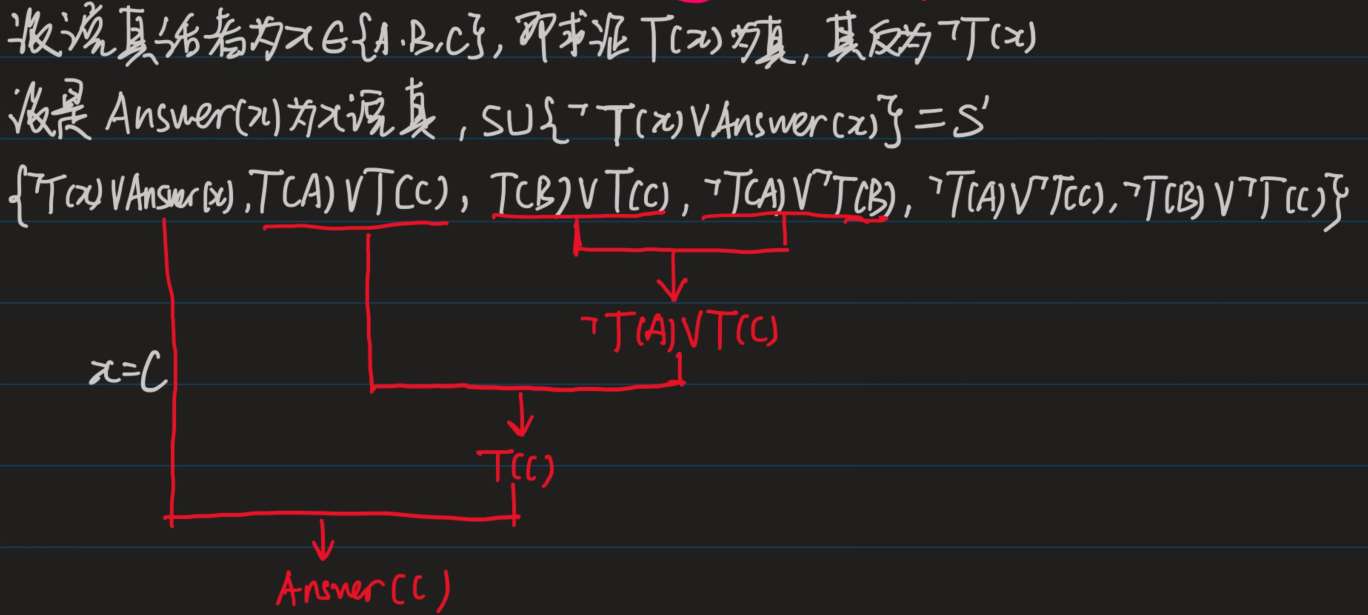 设说真话者为x∈{A.B.C}, 即求证T(x)为真, 其反为¬T(x)
设是Answer(x)为x说真, SU{¬T(x)∨Answer(x)}=S'
{¬T(x)∨Answer(x), T(A)∨T(C), T(B)∨T(C), ¬T(A)∨¬T(B), ¬T(A)∨¬T(C), ¬T(B)∨¬T(C)}
¬T(A)∨T(C)
x=C
T(C)
Answer(C)